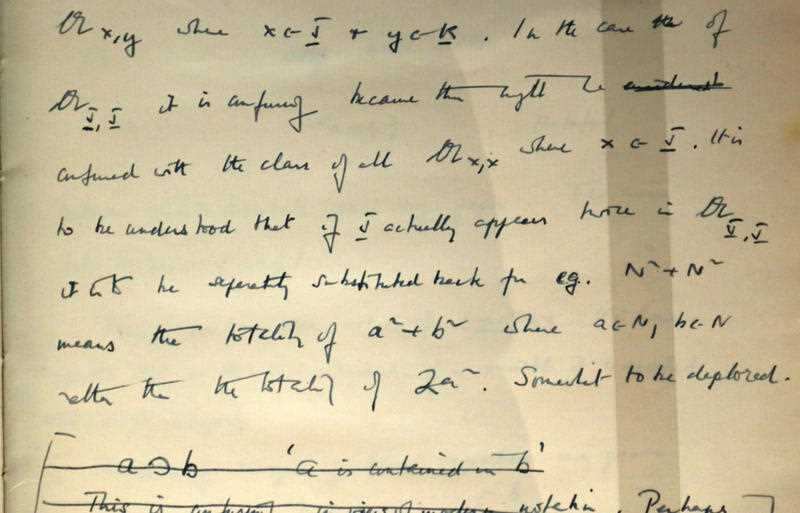 𝔄 x,y where x ∈ J + y ∈ K. In the case the of
𝔄 J,J it is confusing because this might be
confused with the class of all 𝔄 x,x where x ∈ J. It is
to be understood that if J actually appears twice in 𝔄 J,J
it is to be separately substituted back for eg. N² + N²
means the totality of a² + b² where a ∈ N, b ∈ N
rather than the totality of 2a². Somewhat to be deplored.
a ⊃ b 'a is contained in b'
This is in view of modern notation. Perhaps